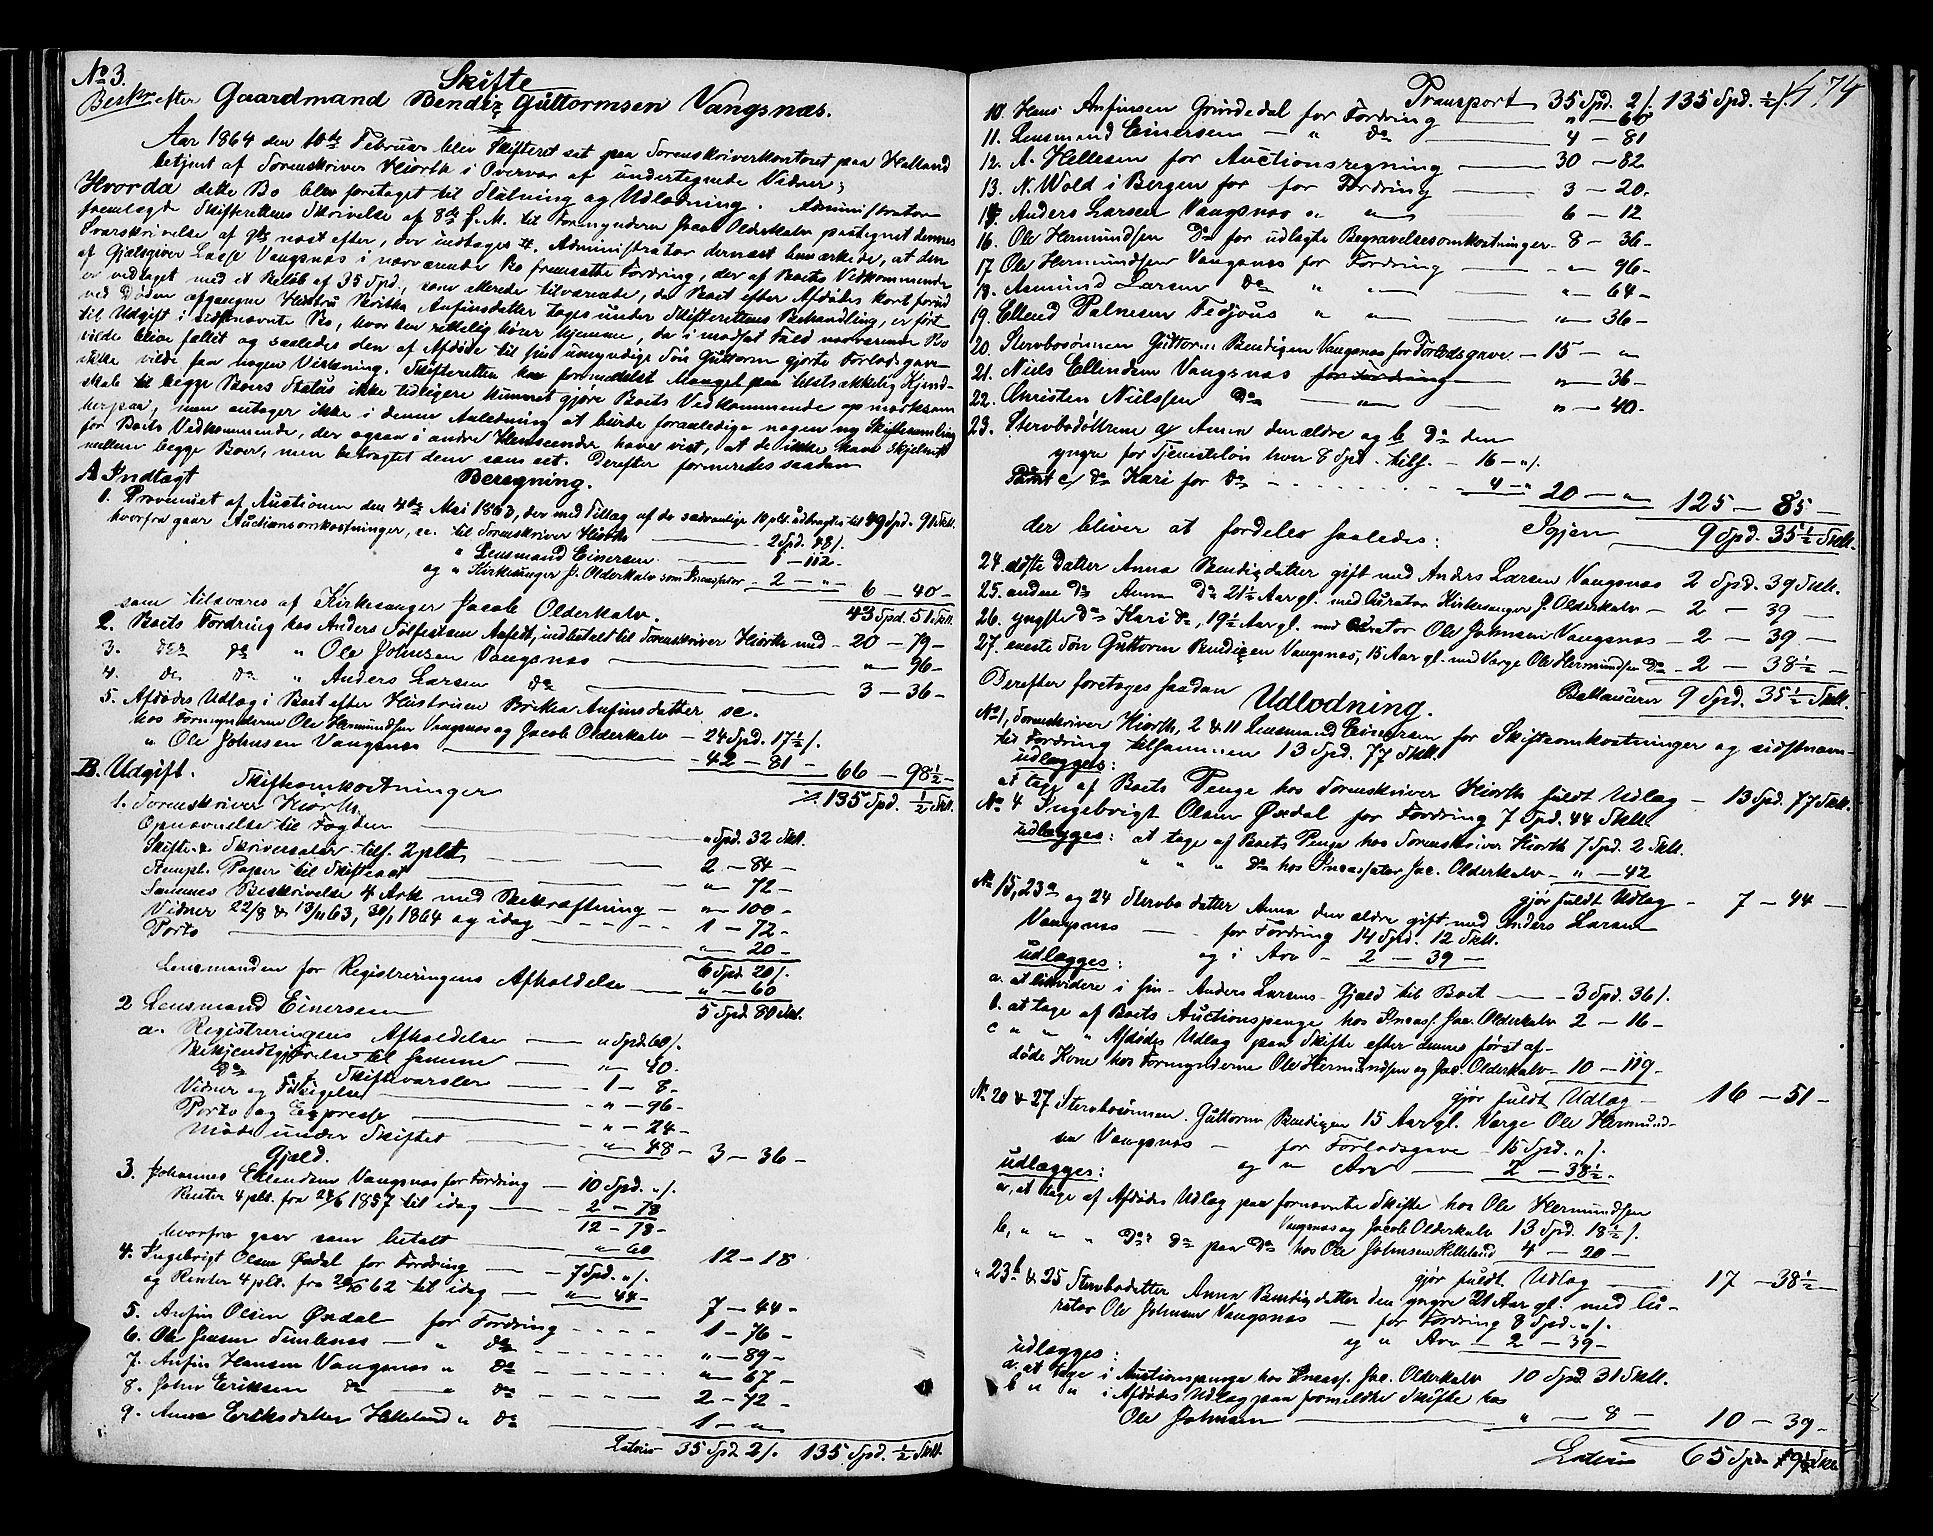 No 3.
Skifte
Beskr efter Gaardmand Bendix Guttormsen Vangsnæs.
Aar 1864 den 10de Februar blev Skifteret sat paa Sorenskriverkontoret paa Hatland
betjent af Sorenskriver Hiorth i Overvær af undertegnede Vidner;
Hvorda dette Bo blev foretaget til Slutning og Udlodning. Administrator
fremlagde Skifterettens Skrivelse af 8de f. M. til Formynderen Jacob Olderkalv paategnet dennes
Svarskrivelse af 9de næst efter, der indtages #. Administrator dernæst bemærkede, at den
af Gjæstgiver Lasse Vangsnæs i nærværende Bo fremsatte Fordring, der af Boets Vedkommende
er vedtaget med et Beløb af 35 Spd., som allerede tilværende, da Boet efter Afdødes kort forud
ved Døden afgangne Hustru Britha Anfinsdatter toges under Skifterettens Behandling, er ført
til Udgift i sidstnævnte Bo, hvor den rettelig hører hjemme, da i modsat Fald nærværende Bo
vilde blive fallit og saaledes den af Afdøde til sin umyndige Søn Guttorm gjorte Forlodsgave
ikke vilde faa nogen Virkning. Skifteretten har formedelst Mangel paa tilstrækkelig Kjend-
skab til begge Boers Status ikke tidligere kunnet gjøre Boets Vedkommende opmærksom
herpaa, men antager ikke i denne Anledning at burde foranledige nogen ny Skiftesamling
for Boets Vedkommende, der ogsaa i andre Henseender have vist, at de ikke have skjelnet
mellem begge Boer, men betragtet dem som eet. Derefter formeredes saadan
A Indtægt Beregning.
1. Provenuet af Auctionen den 4de Mai 1863, der med Tillæg af de sædvanlige 10 pCt. udbragtes til 49 Spd. 91 Skll.
hvorfra gaar Auctionsomkostninger, sc. til Sorenskriver Hiorth 2 Spd. 48 s.
" Lensmand Einersen 1 - 112 -
og " Kirkesanger J. Olderkalv som Incassator 2 - " - 6 - 40 -
som tilsvares af Kirkesanger Jacob Olderkalv. 43 Spd. 51 Skll.
2. Boets Fordring hos Anders Tolfestsen Aafedt, indbetalt til Sorenskriver Hiorth med - 20 - 79 -
3. do do " Ole Johnsen Vangsnæs " - 96 -
4. do do " Anders Larsen do 3 - 36 -
5. Afdødes Udlæg i Boet efter Hustruen Britha Anfinsdatter sc.
hos Formynderne Ole Hermundsen Vangsnæs og Jacob Olderkalv - 24 Spd. 17½ s.
" Ole Johnsen Vangsnæs - 42 - 81 - 66 - 98½ -
B. Udgift. ./. 135 Spd. ½ Skll.
Skifteomkostninger
1. Sorenskriver Hiorth.
Opnævnelse til Fogden " Spd. 32 Skll.
Skifte- & Skriversalær tils. 2 pCt. 2 - 84 -
Stempl. Papir til Skifteact " - 72 -
Sammes Beskrivelse 4 Ark med Bekræftning " - 100 -
Vidner 22/8 & 13/11 63, 30/1 1864 og idag 1 - 72 -
Porto " - 20 -
6 Spd. 20 s.
Lensmanden for Registreringens Afholdelse " - 60
5 Spd. 80 Skll.
2 Lensmand Einersen
a. Registreringens Afholdelse " Spd. 60 s.
Bekjendtgjørelse til samme " - 40 -
do af Skiftevarsler 1 - 8 -
Vidner og Tilsigelse " - 96 -
Porto og Expresse " - 24 -
Møde under Skiftet " - 48 - 3 - 36 -
Gjæld.
3. Johannes Ellendsen Vangsnæs for Fordring 10 Spd. " s.
Renter 4 pCt. fra 24/6 1857 til idag 2 - 78
12 - 78 -
hvorfra gaar som betalt " - 60 12 - 18
4. Ingebrigt Olsen Øxdal for Fordring 7 Spd. " s.
og Renter 4 pCt. fra 20/10 62 til idag " - 44 - 7 - 44 -
5. Anfin Olsen Øxdal for Fordring 1 - 76 -
6. Ole Jensen Simlenæs " do " - 89 -
7. Anfin Hansen Vangsnæs " do " - 67 -
8. John Eriksen do " do 2 - 72 -
9. Anna Eriksdatter Helleland " do 1 - " -
Lateris 35 Spd 2 s. 135 Spd. ½ Skll.
474
Transport 35 Spd. 2 s. 135 Spd. ½ s.
10. Hans Anfinsen Grindedal for Fordring " - 60
11. Lensmand Einersen " do 4 - 81
12. A. Hellesen for Auctionsregning 30 - 82
13. N. Wold i Bergen for for Fordring 3 - 20.
15. Anders Larsen Vangsnæs " " 6 - 12
16. Ole Hermundsen do for udlagte Begravelsesomkostninger 8 - 36 -
17 Ole Hermundsen Vangsnæs for Fordring " - 96 -
18. Asmund Larsen do " " " - 64 -
19. Ellend Palnesen Fedjous " " " - 36 -
20. Sterbosønnen Guttorm Bendixen Vangsnæs for Forlodsgave 15 - "
21. Niels Ellendsen Vangsnæs for Fordring " - 36 -
22. Christen Nielssen do " " - 40 -
23. Sterbodøttrene a, Anna den ældre og b do den
yngre for Tjenesteløn hver 8 Spd. tils. - 16 - " s.
Samt c, do Kari for do 4 - " 20 - " 125 - 85 -
Igjen 9 Spd. 35½ Skll.
der bliver at fordeles saaledes:
24. ældste Datter Anna Bendixdatter gift med Anders Larsen Vangsnæs 2 Spd. 39 Skll.
25. anden do Anna do 21½ Aar gl. med Curator Kirkesanger J. Olderkalv 2 - 39 -
26. yngste do Kari do, 19½ Aar gl. med Curator Ole Johnsen Vangsnæs 2 - 39 -
27. eneste Søn Guttorm Bendixen Vangsnæs, 15 Aar gl. med Værge Ole Hermundsen do 2 - 38½ -
Ballancerer 9 Spd. 35½ Skll.
Derefter foretoges saadan
Udlodning.
No 1, Sorenskriver Hiorth, 2 & 11 Lensmand Einersen for Skifteomkostninger og sidstnævn-
tes Fordring tilsammen 13 Spd. 77 Skll.
udlægges:
at tage af Boets Penge hos Sorenskriver Hiorth fuldt Udlæg 13 Spd. 77 Skll.
No 4 Ingebrigt Olsen Øxdal for Fordring 7 Spd. 44 Skll.
udlægges: at tage af Boets Penge hos Sorenskriver Hiorth 7 Spd. 2 Skll.
" " " do hos Incassator Jac. Olderkalv " - 42
gjør fuldt Udlæg 7 - 44 -
No 15, 23a og 24 Sterbodatter Anna den ældre gift med Anders Larsen
Vangsnæs for Fordring 14 Spd. 12 Skll.
og i Arv 2 - 39 -
udlægges:
a. at likvidere i sin - Anders Larsens - Gjæld til Boet 3 Spd. 36 s.
b. at tage af Boets Auctionspenge hos Incass. Jac. Olderkalv 2 - 16 -
c " " " Afdødes Udlæg paa Skifte efter dennes først af-
døde Kone hos Formynderne Ole Hermundsen og Jac. Olderkalv 10 - 119 -
gjør fuldt Udlæg 16 - 51 -
No 20 & 27 Sterbosønnen Guttorm Bendixen 15 Aar gl. Værge Ole Hermund-
sen Vangsnæs for Forlodsgave 15 Spd. " s.
og " Arv 2 - 38½ -
udlægges:
a, at tage af Afdødes Udlæg paa fornævnte Skifte hos Ole Hermundsen
Vangsnæs og Jacob Olderkalv 13 Spd. 18½ s.
b, " " " do do paa do hos Ole Johnsen Helleland 4 - 20 -
gjør fuldt Udlæg 17 - 38½ -
" 23b & 25 Sterbodatter Anna Bendixdatter den yngre 21 Aar gl. med Cu-
rator Ole Johnsen Vangsnæs for Fordring 8 Spd. " s.
og " Arv 2 - 39 -
udlægges:
a. at tage i Auctionspenge hos Incass. Jac. Olderkalv 10 Spd 31 Skll.
b " " i Afdødes Udlæg paa formeldte Skifte hos
Ole Johnsen " - 8 - 10 - 39 -
Lateris 65 Spd. 9½ Skll